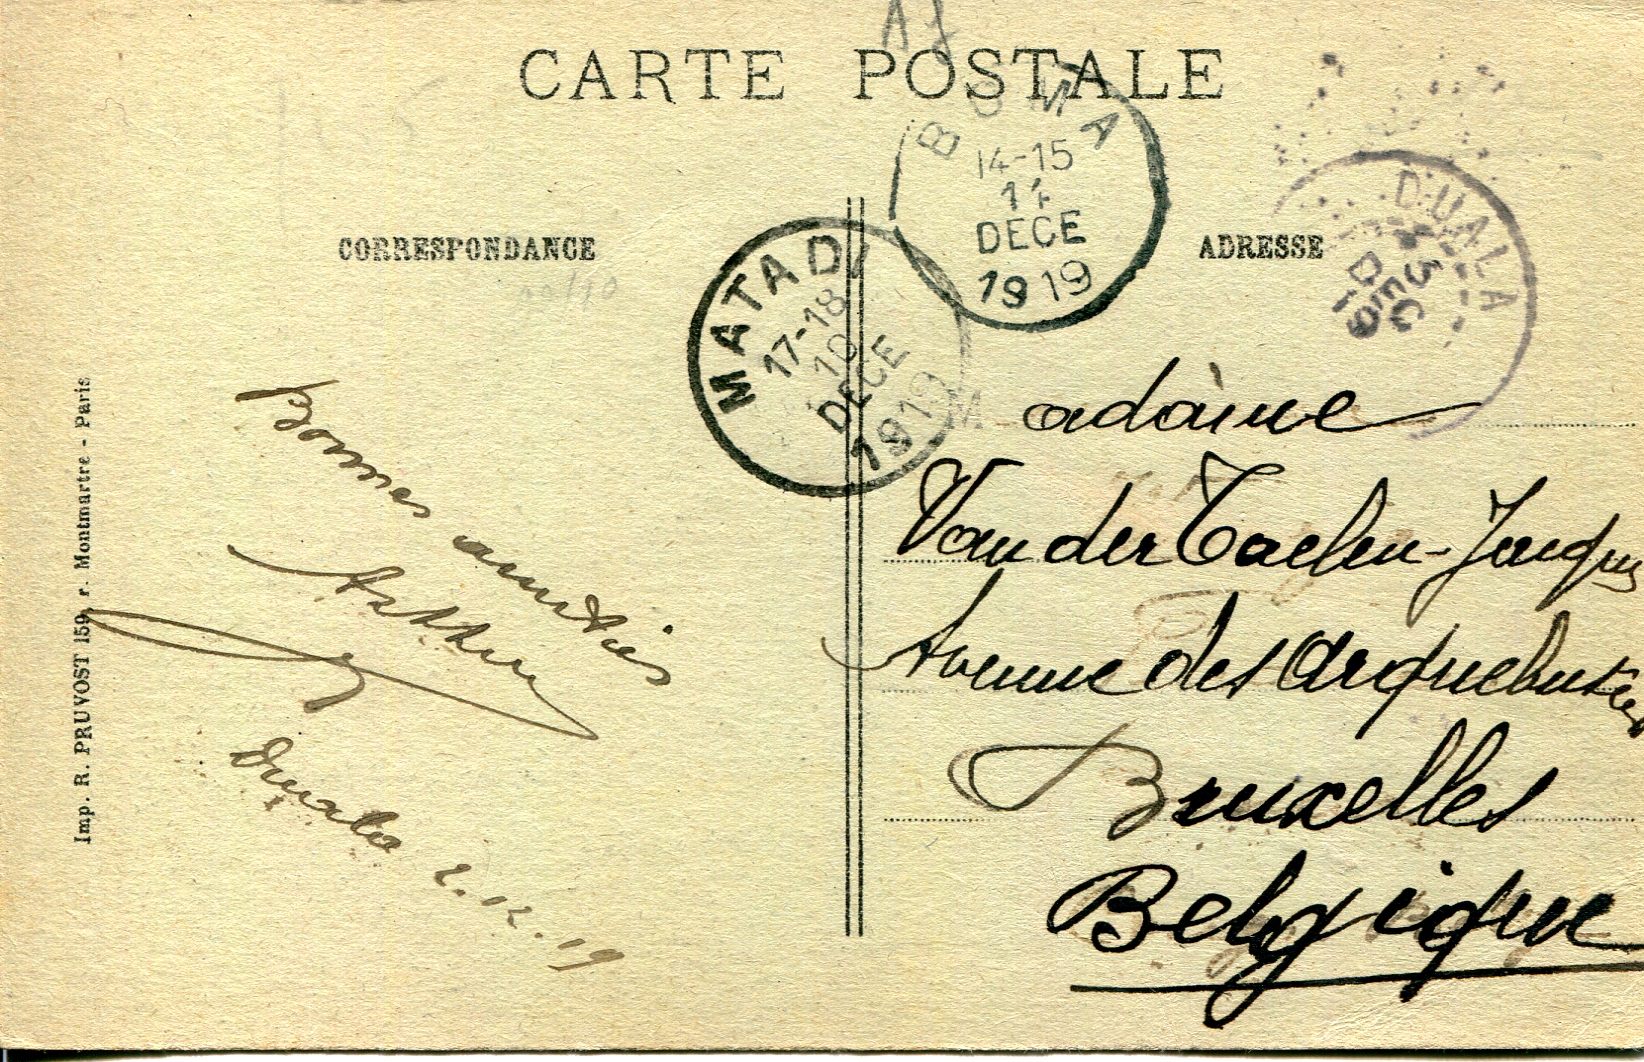 CARTE POSTALE
BOMA
14-15
11
DECE
1919
DUALA
DEC
19
CORRESPONDANCE
ADRESSE
MATADI
17-18
10
DECE
1919
Imp. R. PRUVOST 159, r. Montmartre - Paris
Bonnes amitiés
Arthur
Duala 2.12.19
adame
Van der Taelen-Jacques
Avenue des Arquebusiers
Bruxelles
Belgique